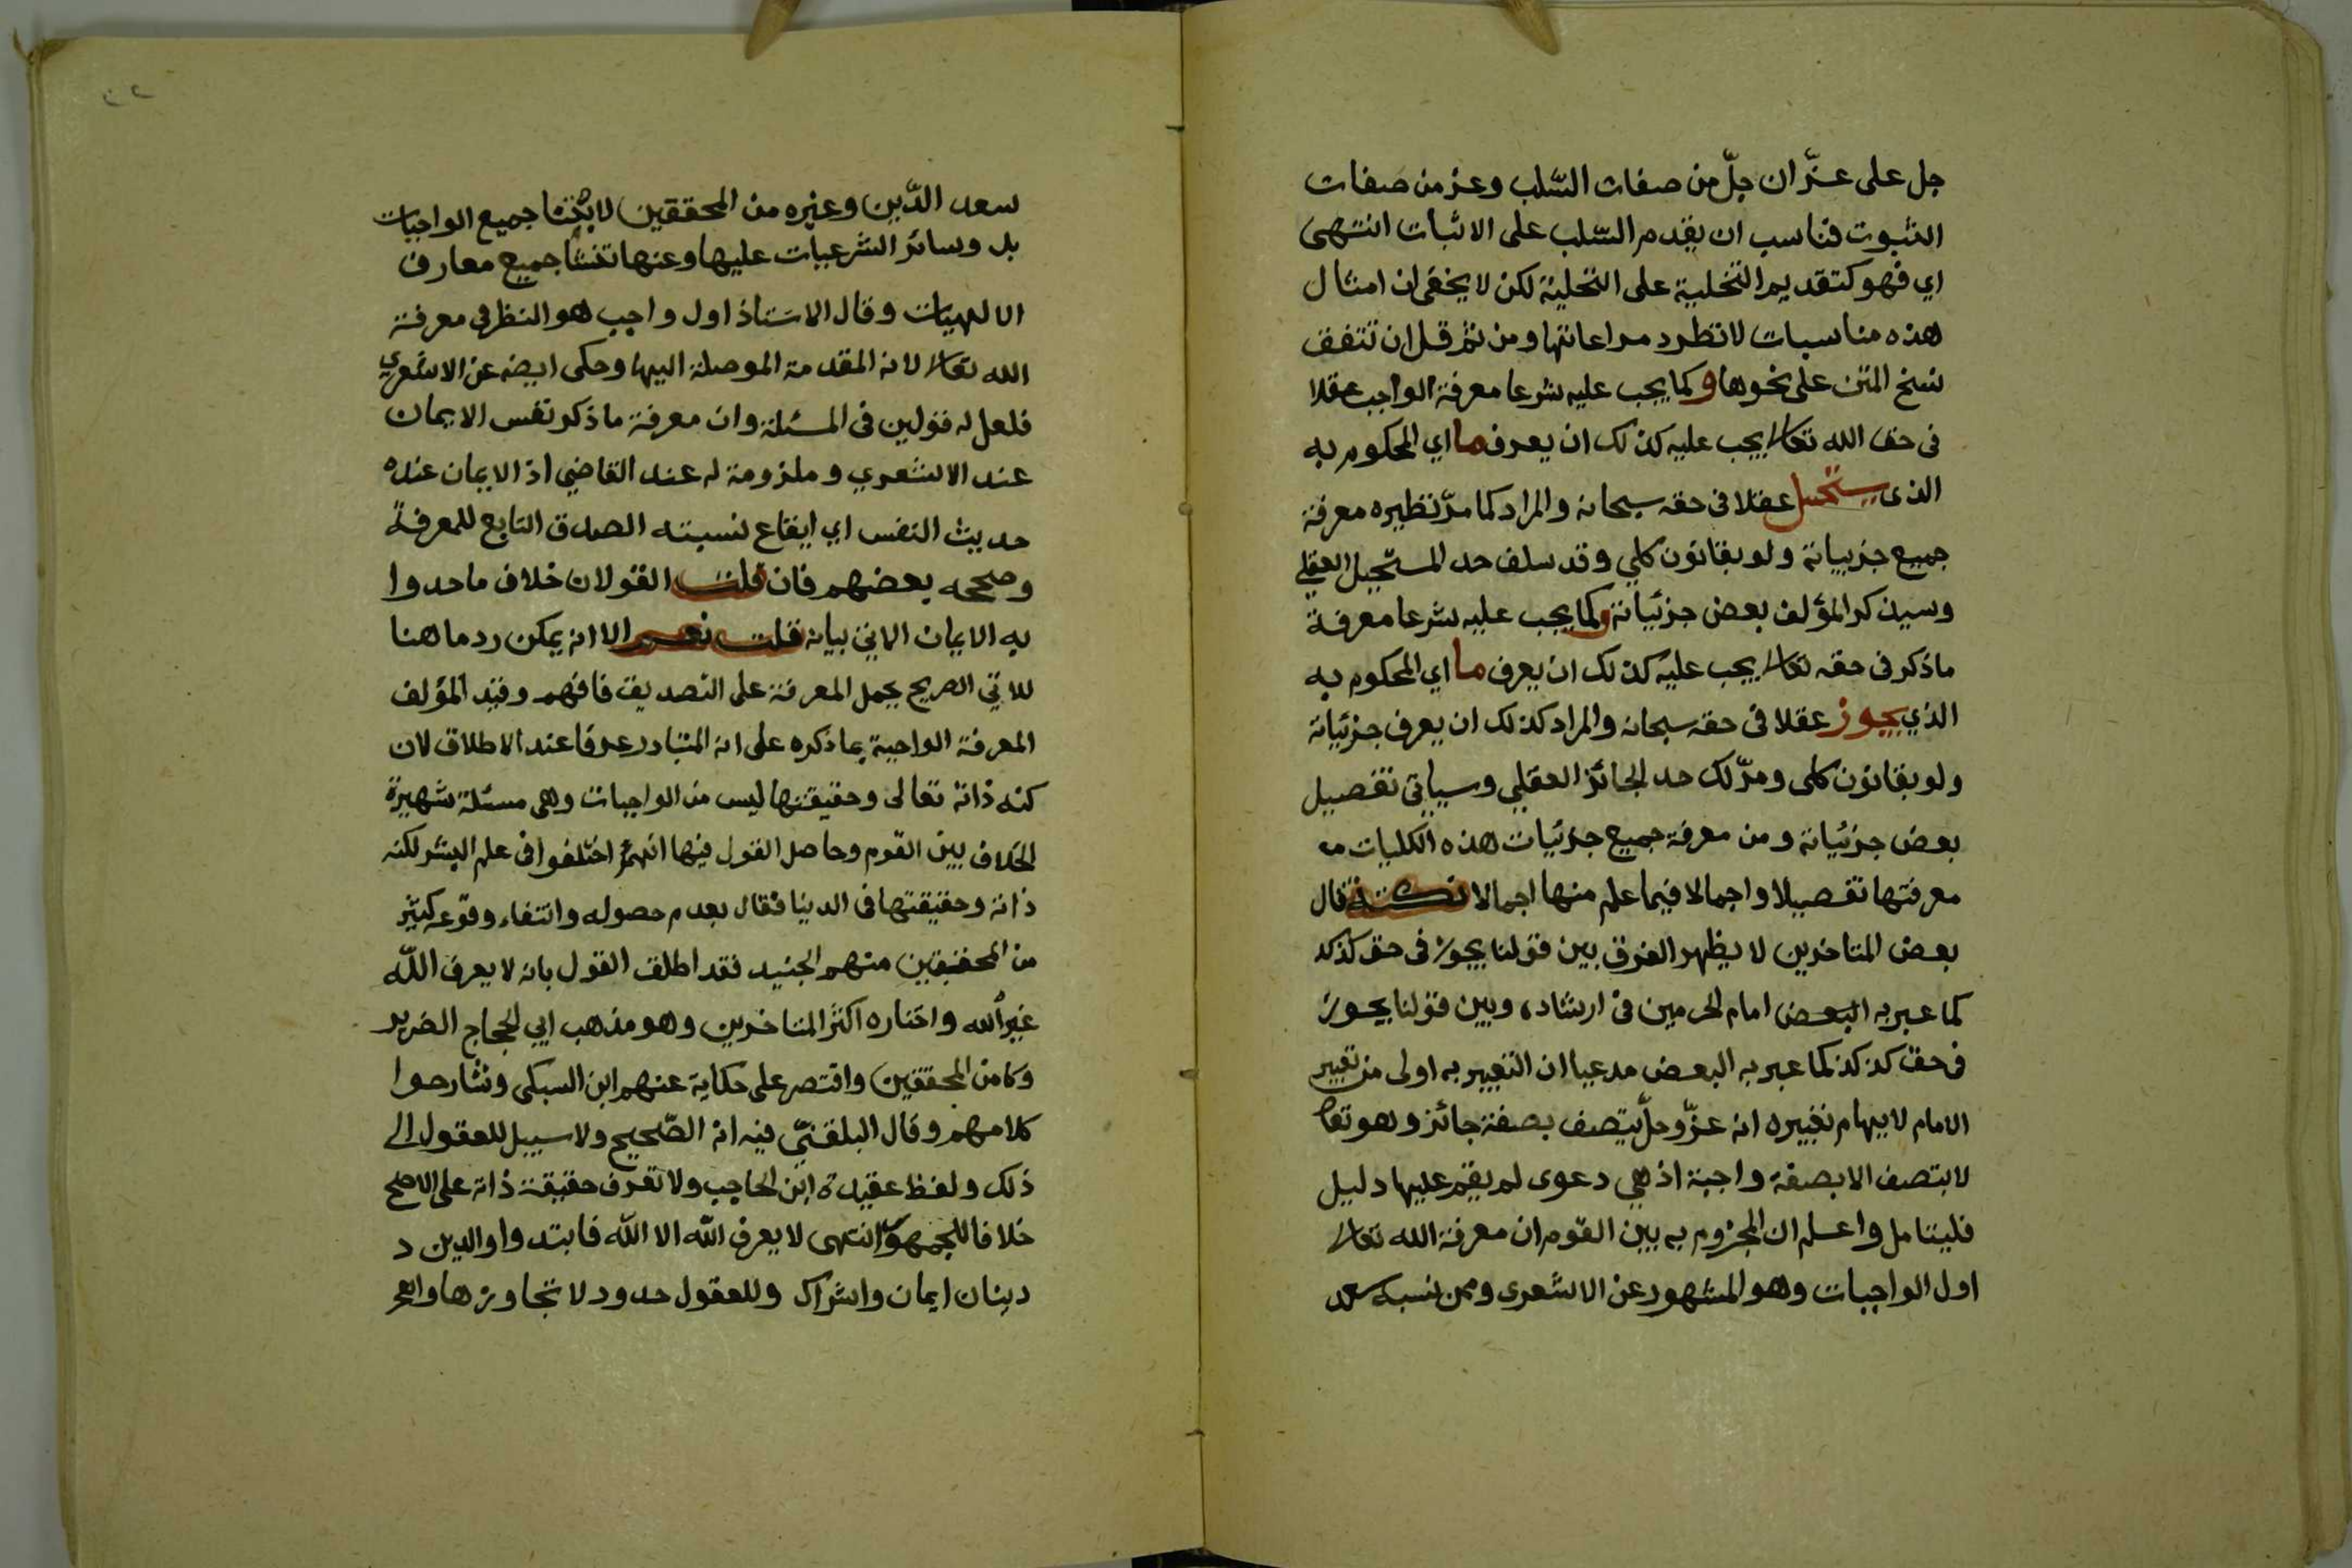 جل على عزّ ان جلّ من صفات السّلب وعز من صفات
الثبوت فناسب ان يقدم السّلب على الاثبات انتهى
اي فهو كتقديم التخلية على التحلية لكن لا يخفى ان امثال
هذه مناسبات لا تطرد مراعاتها ومن ثم قل ان تتفق
نسخ المتن على نحوها وكما يجب عليه شرعا معرفة الواجب عقلا
فى حق الله تعالى يجب عليه كذلك ان يعرف ما اي المحكوم به
الذى يستحيل عقلا فى حقه سبحانه والمراد كما مرّ نظيره معرفة
جميع جزيياته ولو بقانون كلي وقد سلف حد المستحيل العقلي
وسيذكر المؤلف بعض جزئياته وكما يجب عليه شرعا معرفة
ما ذكر فى حقه تعالى يجب عليه كذلك ان يعرف ما اي المحكوم به
الذي يجوز عقلا فى حقه سبحانه والمراد كذلك ان يعرف جزئياته
ولو بقانون كلى ومرّ لك حد الجائز العقلي وسياتى تفصيل
بعض جزئياته ومن معرفة جميع جزئيات هذه الكليات
معرفتها تفصيلا واجمالا فيما علم منها اجمالا نكتة قال
بعض المتاخرين لا يظهر الفرق بين قولنا يجوز فى حق كذ كذ
كما عبر به البعض امام الحرمين فى ارشاده وبين قولنا يجوز
فى حق كذ كذ كما عبر به البعض مدعيا ان التعبير به اولى من تعبير
الامام لايهام تعبيره انه عزّ وجلّ يتصف بصفة جائز وهو تعالى
لا يتصف الا بصفة واجبة اذ هي دعوى لم يقم عليها دليل
فليتامل واعلم ان المجزوم به بين القوم ان معرفة الله تعالى
اول الواجبات وهو المشهور عن الاشعرى وممن نسبه سعد
سعد الدّين وغيره من المحققين لابتنا جميع الواجبات
بل وسائر الشرعيات عليها وعنها تنشا جميع معارف
الالهيّات وقال الاستاذ اول واجب هو النظر فى معرفة
الله تعالى لانه المقدمة الموصلة اليها وحكى ايضه عن الاشعري
فلعل له قولين فى المسئلة وان معرفة ما ذكر نفس الايمان
عند الاشعري وملزومة له عند القاضي اذ الايمان عنده
حديث النفس اي ايقاع نسبته الصدق التابع للمعرفة
وصححه بعضهم فان قلت القولان خلاف ما حدوا
به الايمان الاتي بيانه قلت نعم الا انه يمكن رد ما هنا
للاتي الصريح بحمل المعرفة على التصديق فافهم وقيّد المؤلف
المعرفة الواجبة بما ذكره على انه المتبادر عرفا عند الاطلاق لان
كنه ذاته تعالى وحقيقتها ليس من الواجبات وهى مسئلة شهيرة
الخلاف بين القوم وحاصل القول فيها انهم اختلفوا فى علم البشر لكنه
ذاته وحقيقتها فى الدنيا فقال بعدم حصوله وانتفاء وقوعه كثير
من المحققين منهم الجنيد فقد اطلق القول بانه لا يعرف الله
غير الله واختاره اكثر المتاخرين وهو مذهب ابي الحجاج الضرير
وكا من المحققين واقتصر على حكاية عنهم ابن السبكى وشارحوا
كلامهم وقال البلقنيّ فيه انه الصّحيح ولا سبيل للعقول الى
ذلك ولفظ عقيدة ابن الحاجب ولا تعرف حقيقة ذاته على الاصح
خلافا للجمهور انتهى لا يعرف الله الا الله فابتدوا والدين د
دينان ايمان واشراك وللعقول حدود لا تجاوزها والعجز